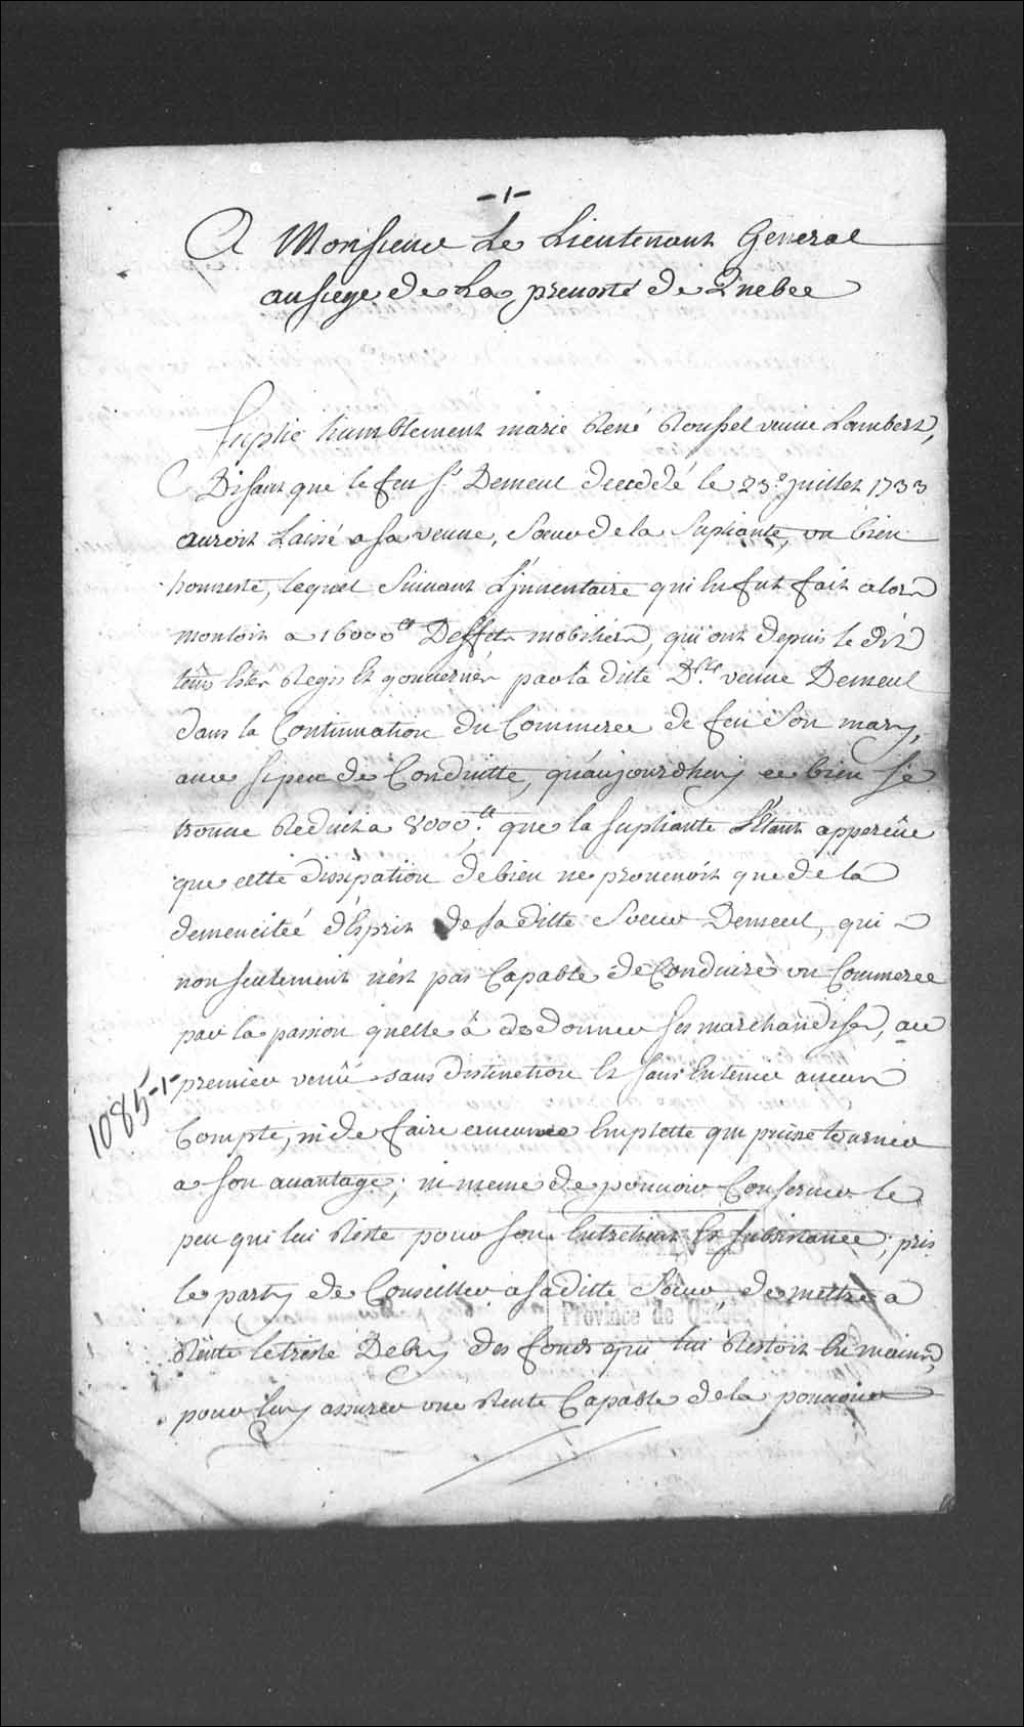 -1-
A Monsieur Le Lieutenant General
au siege de La prevosté de Quebec
Suplie humblement marie René Roussel veuve Lambert,
Disant que le feu Sr Demeul decedé le 23e juillet 1733
auroit Laissé a sa veuve, Soeur de la Supliante, un bien
honneste, lequel Suivant L'jnventaire qui en fut fait alors
montoit a 16000tt Deffets mobiliers, qui ont depuis le dit
tems Estés Regis Et gouvernés par la ditte Dlle veuve Demeul
dans la Continuation du Commerce de feu Son mary,
avec si peu de Conduitte, qu'aujourdhuy ce bien se
trouve Reduit a 8000tt. que la supliante s'Etant apperçüe
que cette dissipation de bien ne provenoit que de la
demencitée d'Esprit de sa ditte Soeur Demeul, qui
non seulement n'est pas Capable de Conduire un Commerce
par la passion quelle à de donner ses marchandises, au
premier venû sans distinction Et sans En tenir aucun
Compte, ni de faire aucune Emplette qui puisse tourner
a son avantage, ni meme de pouvoir Conserver le
peu qui lui Reste pour son Entretient Et subsistance, pris
le party de Conseiller a sa ditte Soeur, de mettre a
Rente le triste Debry des fonds qui lui Restoit En mains,
pour luy assurer une Rente Capable de la pouvoir
1085-1-
Province de Québec